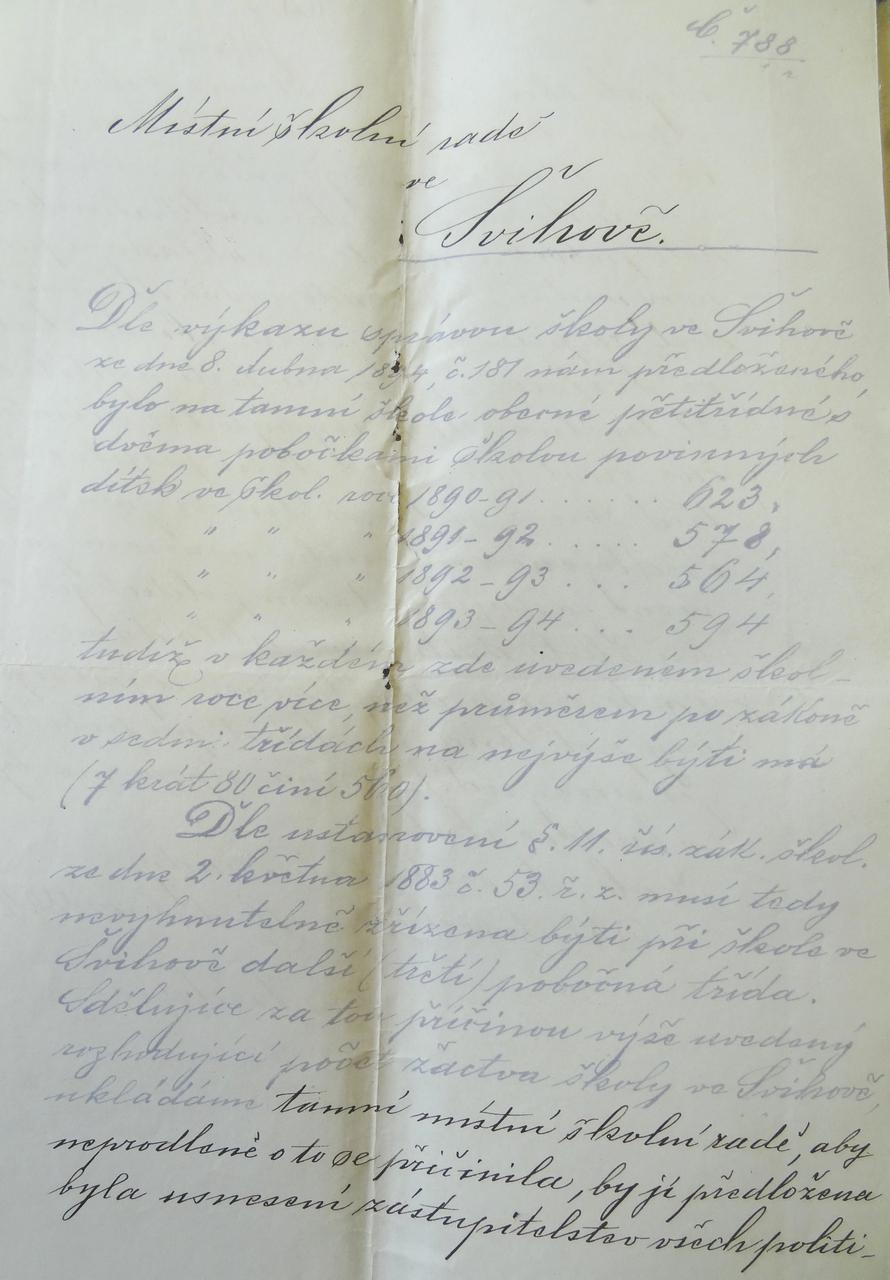 Č. 788
Místní školní radě
ve
Švihově.
Dle výkazu správou školy ve Švihově
ze dne 8. dubna 1894, č. 181 nám předloženého,
bylo na tamní škole obecné pětitřídné s
dvěma pobočkami školou povinných
dítek ve škol. roce 1890-91 ....... 623,
" " " 1891-92 ...... 578,
" " " 1892-93 .... 564,
" " " 1893-94 .... 594
tudíž v každém zde uvedeném škol-
ním roce více, než průměrem po zákoně
v sedmi třídách na nejvýše býti má
(7 krát 80 činí 560).
Dle ustanovení §. 11. říš. zák. škol.
ze dne 2. května 1883 č. 53. ř. z. musí tedy
nevyhnutelně zřízena býti při škole ve
Švihově další (třetí) pobočná třída.
Sdělujíce za tou příčinou výše uvedený
rozhodující počet žactva školy ve Švihově,
ukládáme tamní místní školní radě, aby
neprodleně o to se přičinila, by jí předložena
byla usnesení zástupitelstev všech politi-